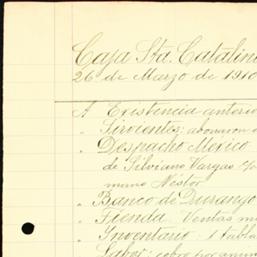 Caja Sta. Catalin
26 de Marzo de 1910
A Existencia anterio
" Sirvientes; abonaron
" Despacho México
de Silviano Vargas s/o
mano Néstor
" Banco de Durango
" Tienda. Ventas m
" Inventario. 1 tabla
" Labor; cobro por